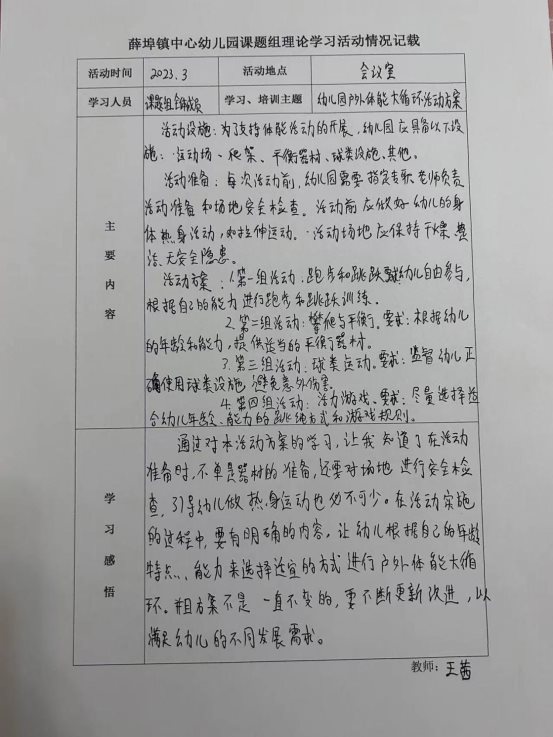 薛埠镇中心幼儿园课题组理论学习活动情况记载
活动时间 2023.3 活动地点 会议室
学习人员 课题组全体成员 学习、培训主题 幼儿园户外体能大循环活动方案
主要内容
活动设施：为了支持体能活动的开展，幼儿园应具备以下设
施：运动场、爬架、平衡器材、球类设施、其他。
活动准备：每次活动前，幼儿园需要指定专职老师负责
活动准备和场地安全检查。活动前应做好幼儿的身
体热身活动，如拉伸运动。活动场地应保持干燥、整
洁、无安全隐患。
活动方案：1.第一组活动：跑步和跳跃 要求：幼儿自由参与，
根据自己的能力进行跑步和跳跃训练。
2.第二组活动：攀爬与平衡。要求：根据幼儿
的年龄和能力，提供适当的平衡器材。
3.第三组活动：球类运动。要求：监督幼儿正
确使用球类设施，避免意外伤害。
4.第四组活动：活力游戏。要求：尽量选择适
合幼儿年龄、能力的跳绳方式和游戏规则。
学习感悟
通过对本活动方案的学习，让我知道了在活动
准备时，不单是器材的准备，还要对场地进行安全检
查，引导幼儿做热身运动也必不可少。在活动实施
的过程中，要有明确的内容，让幼儿根据自己的年龄
特点、能力来选择适宜的方式进行户外体能大循
环。并且方案不是一直不变的，要不断更新改进，以
满足幼儿的不同发展需求。
教师：王茜